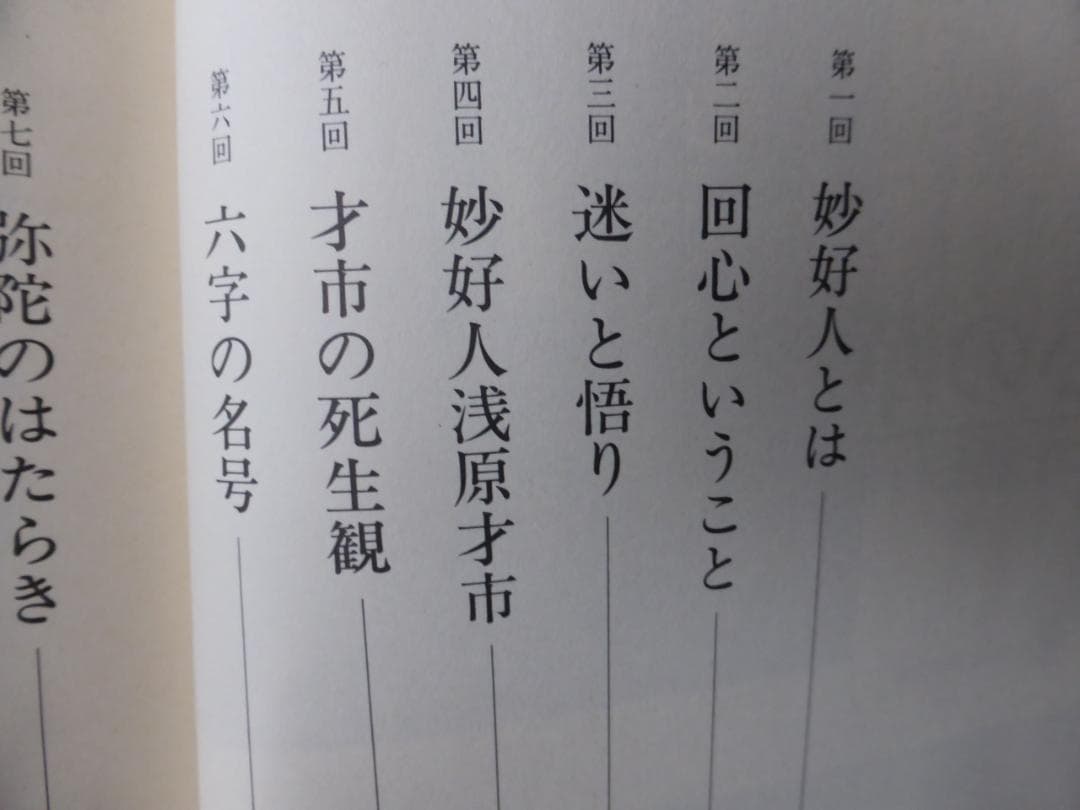 第一回 妙好人とは
第二回 回心ということ
第三回 迷いと悟り
第四回 妙好人浅原才市
第五回 才市の死生観
第六回 六字の名号
第七回 弥陀のはたらき